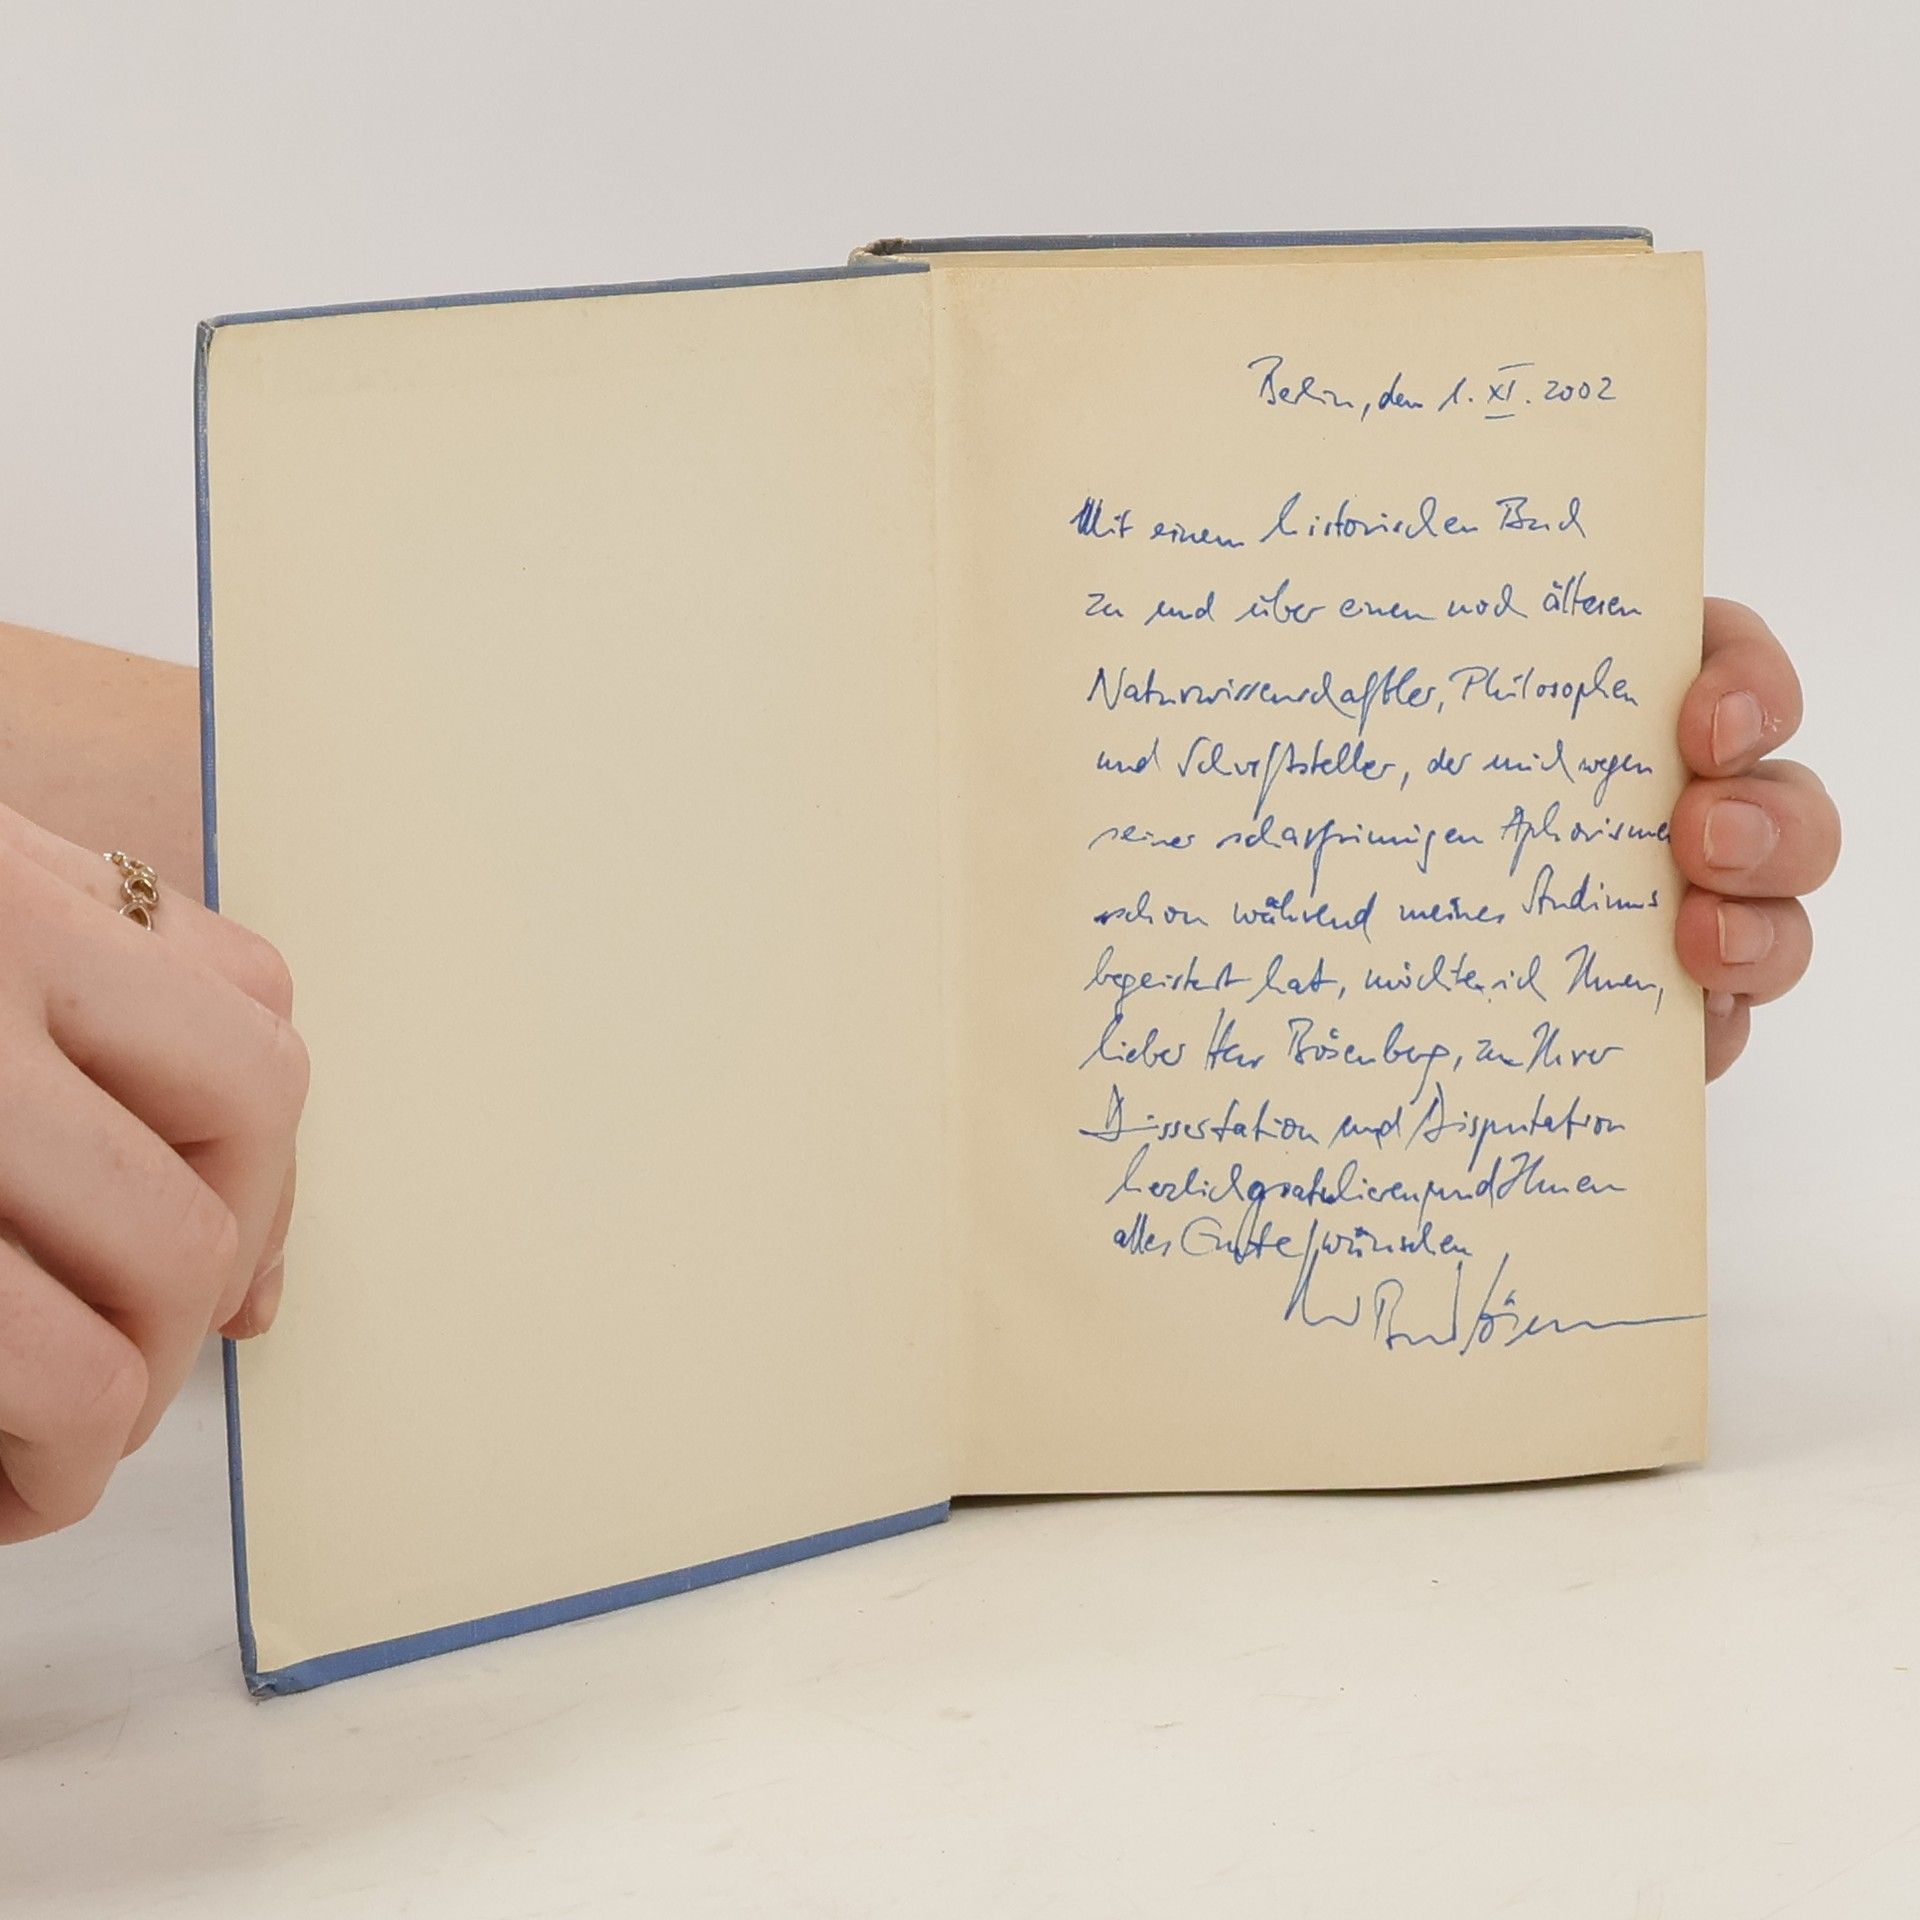 Berlin, den 1. XI. 2002
Mit einem historischen Buch
zu und über einen noch älteren
Naturwissenschaftler, Philosophen
und Schriftsteller, der mich wegen
seiner scharfsinnigen Aphorismen
schon während meines Studiums
begeistert hat, möchte ich Ihnen,
lieber Herr Bösenberg, zu Ihrer
Dissertation und Disputation
herzlich gratulieren und Ihnen
alles Gute wünschen